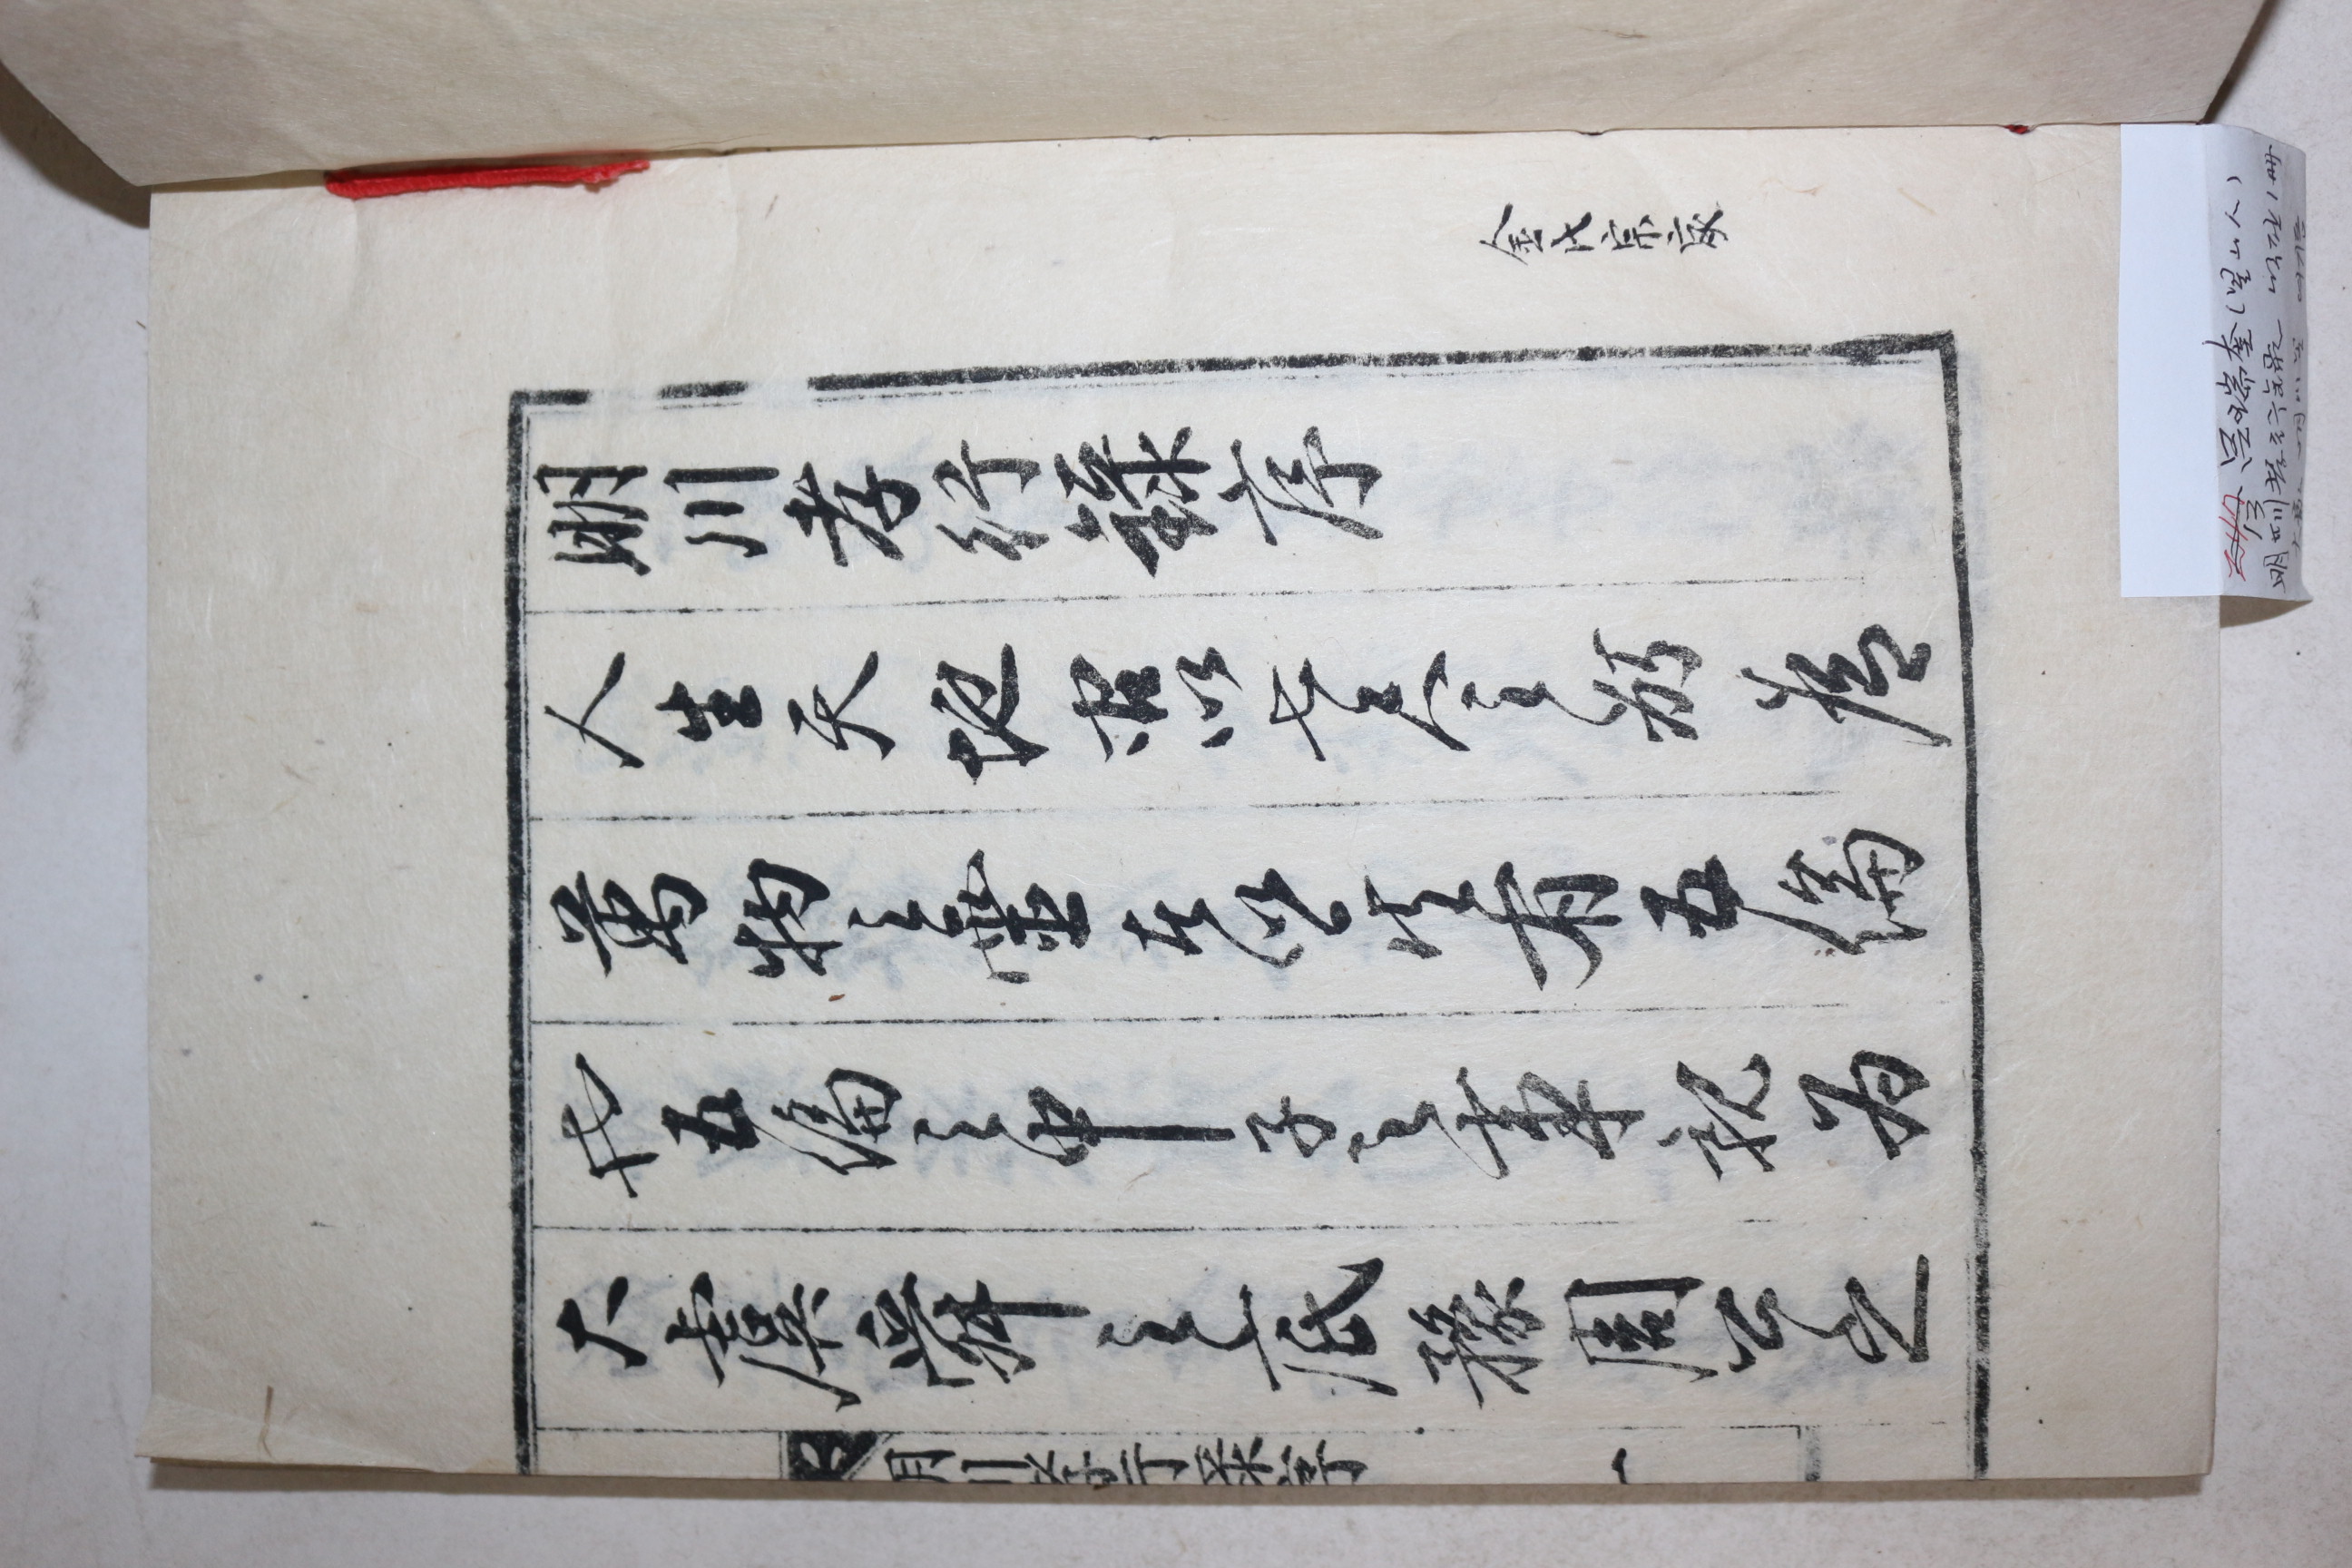 金氏宗家
明川孝行錄序
人生天地君以七尺之形
萬物之靈者以其有五倫
也五倫之中子之事親爲
大虞舜之底豫周公之
一
呂瑞奎(星山人)
明川孝行錄